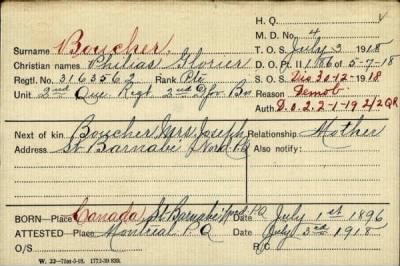 H. Q.
M. D. No. 4
Surname Boucher.
T. O. S. July 3 1918
Christian names Philias Glorier
D. O. Pt. II 186 of 5-7-18
Regtl. No. 3163562 Rank Pte
S. O. S. Dis 30-12-18
Unit 2nd Que Regt 2nd Dfor Bn
Reason Demob
Auth D.O. 2 2-1-19 2/2 QR
Next of kin Boucher, Mrs Joseph Relationship Mother
Address St Barnabé Nord PQ Also notify:
BORN - Place Canada, St Barnabé Nord PQ Date July 1st 1896
ATTESTED - Place Montreal P Q Date July 3rd 1918
O/S R/C